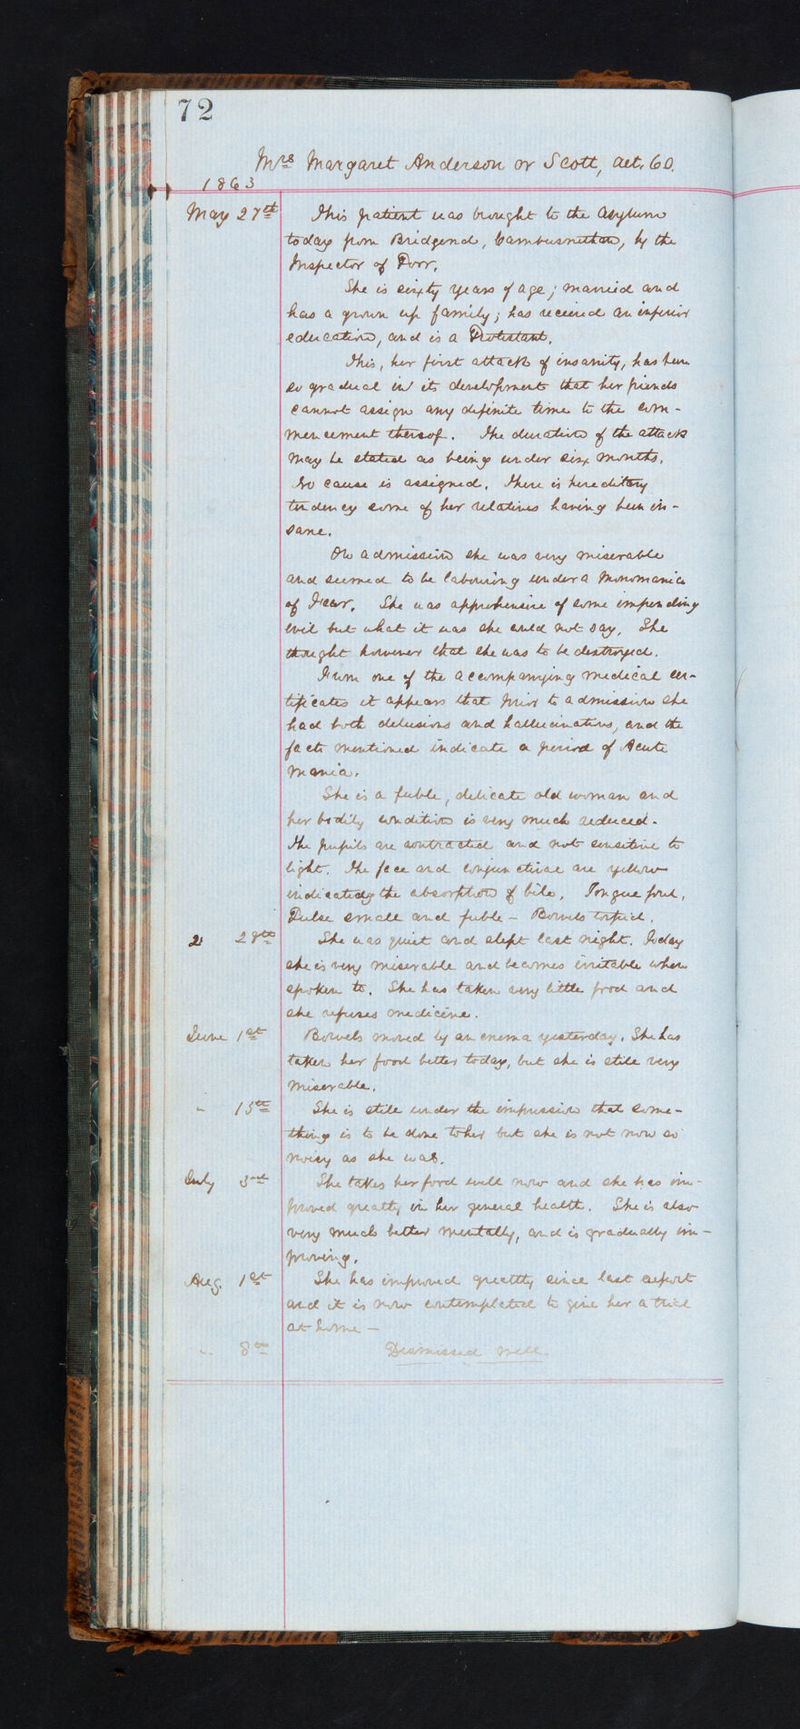 72
Mrs Margaret Anderson or Scott, aet. 60.
1863
May 27th This patient was brought to the Asylum
today from Bridgend, Cambusnethan, by the
Inspector of Poor.
She is sixty years of age; married and
has a grown up family; has received an inferior
education, and is a Protestant.
This, her first attack of insanity, has been
so gradual in its development that her friends
cannot assign any definite time to the com-
mencement thereof. The duration of the attack
may be stated as being under six months.
No cause is assigned. There is hereditary
tendency some of her relatives having been in-
sane.
On admission she was very miserable
and seemed to be labouring under a Monomania
of Fear. She was apprehensive of some impending
evil but what it was she could not say. She
thought however that she was to be destroyed.
From one of the accompanying medical cer-
tificates it appears that prior to admission she
had both delusions and hallucinations, and the
facts mentioned indicate a period of Acute
Mania.
She is a feeble, delicate old woman and
her bodily condition is very much reduced.
The pupils are contracted and not sensitive to
light. The face and conjunctivae are yellow
indicating the absorption of bile. Tongue foul,
Pulse small and feeble - Bowels torpid.
" 28th She was quiet and slept last night. Today
she is very miserable and becomes irritable when
spoken to. She has taken very little food and
she refuses medicine.
June 1st Bowels moved by an enema yesterday. She has
taken her food better today, but she is still very
miserable.
" 15th She is still under the impression that some-
thing is to be done to her but she is not now so
noisy as she was.
July 3rd She takes her food well now and she has im-
proved greatly in her general health. She is also
very much better mentally, and is gradually im-
proving.
Aug. 1st She has improved greatly since last report
and it is now contemplated to give her a trial
at home —
" 8th Dismissed well.